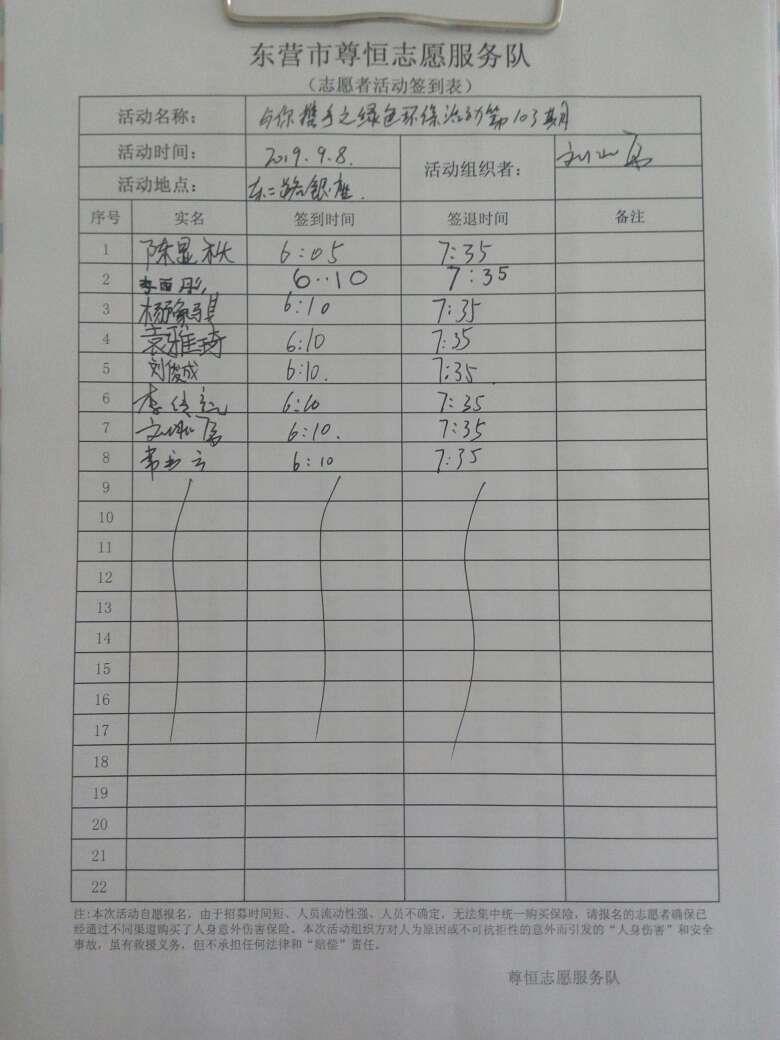 东营市尊恒志愿服务队
（志愿者活动签到表）
活动名称： 与你携手之绿色环保活动第103期
活动时间： 2019.9.8. 活动组织者：
活动地点： 东二路银座.
序号 实名 签到时间 签退时间 备注
1 陈显秋 6:05 7:35
2 6:10 7:35
3 6:10 7:35
4 袁雅琦 6:10 7:35
5 刘俊成 6:10. 7:35.
6 6:10 7:35
7 6:10. 7:35
8 6:10 7:35
9
10
11
12
13
14
15
16
17
18
19
20
21
22
注:本次活动自愿报名，由于招募时间短、人员流动性强、人员不确定，无法集中统一购买保险，请报名的志愿者确保已
经通过不同渠道购买了人身意外伤害保险。本次活动组织方对人为原因或不可抗拒性的意外而引发的“人身伤害”和安全
事故，虽有救援义务，但不承担任何法律和“赔偿”责任。
尊恒志愿服务队